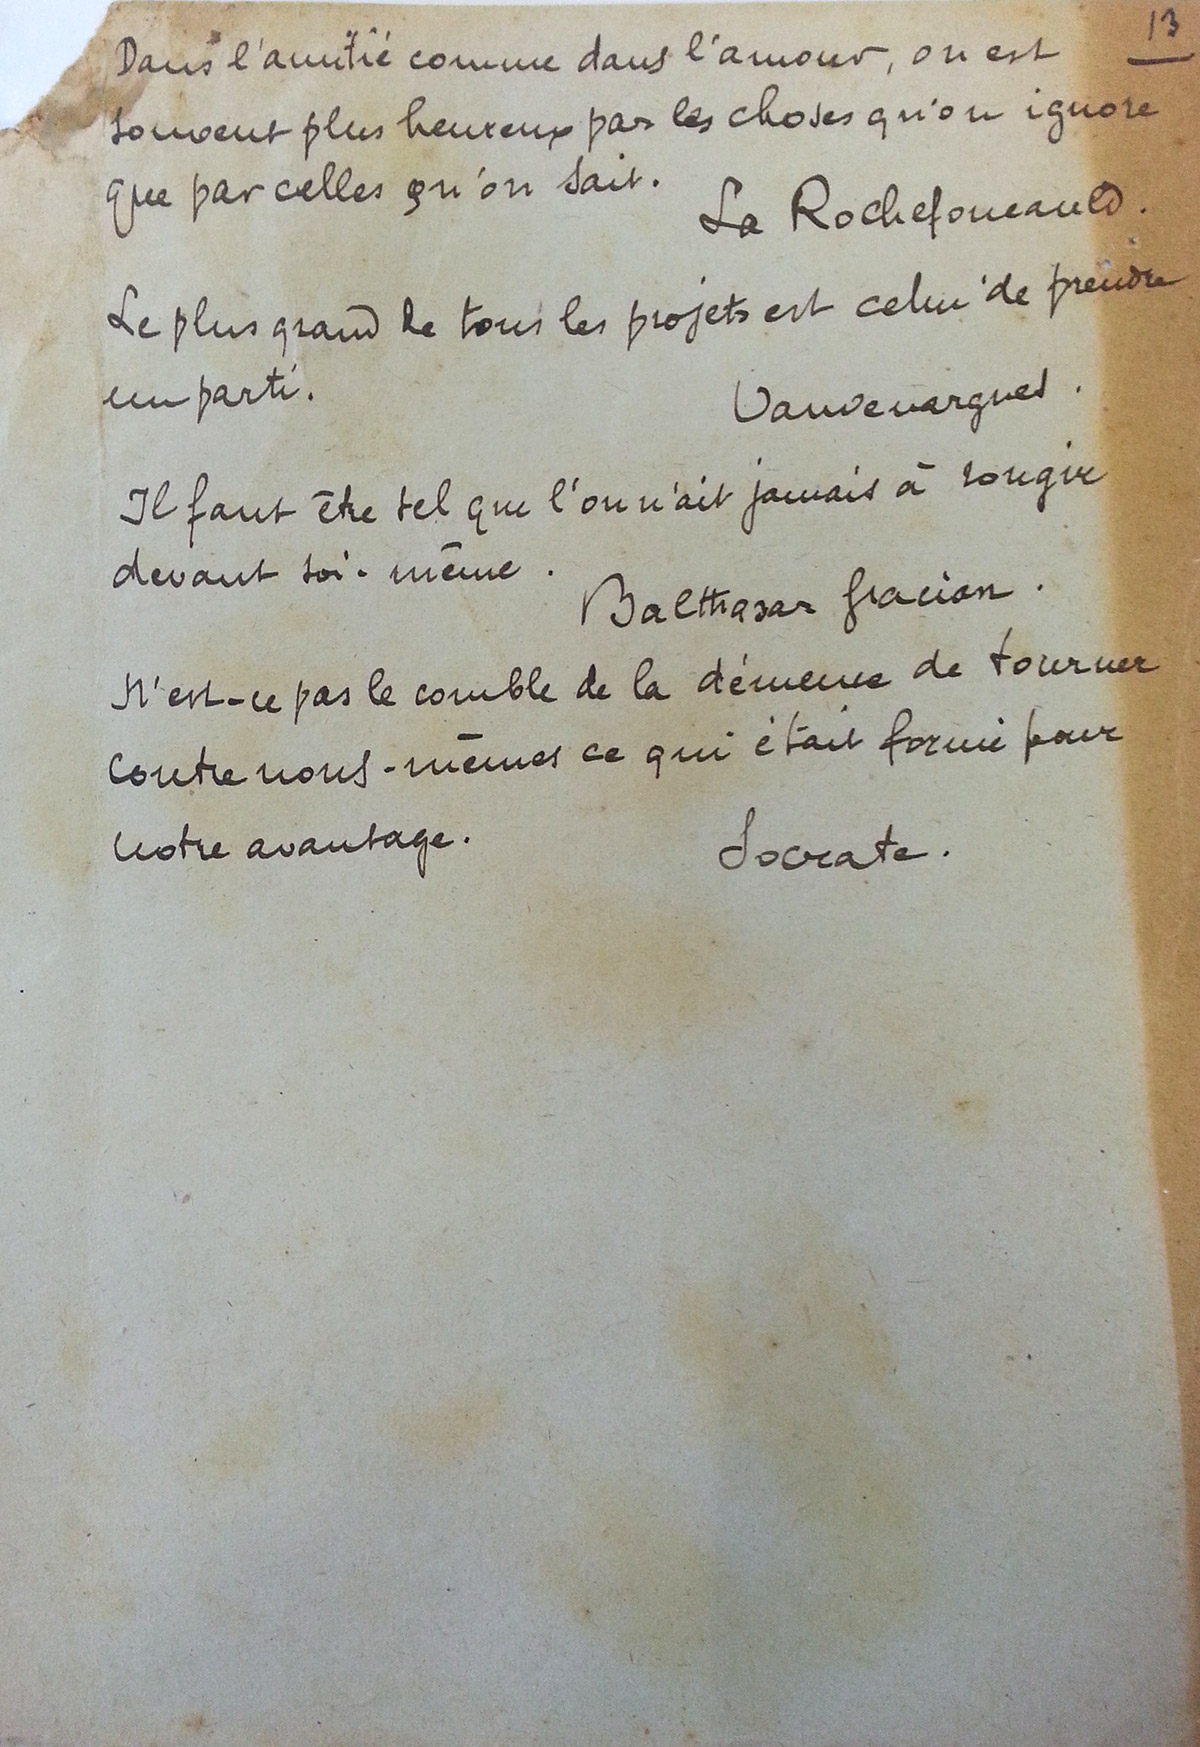 13
Dans l'amitié comme dans l'amour, on est
souvent plus heureux par les choses qu'on ignore
que par celles qu'on sait.
La Rochefoucauld.
Le plus grand de tous les projets est celui de prendre
un parti.
Vauvenargues.
Il faut être tel que l'on n'ait jamais à rougir
devant soi-même.
Balthasar Gracian.
N'est-ce pas le comble de la démence de tourner
contre nous-mêmes ce qui était formé pour
notre avantage.
Socrate.